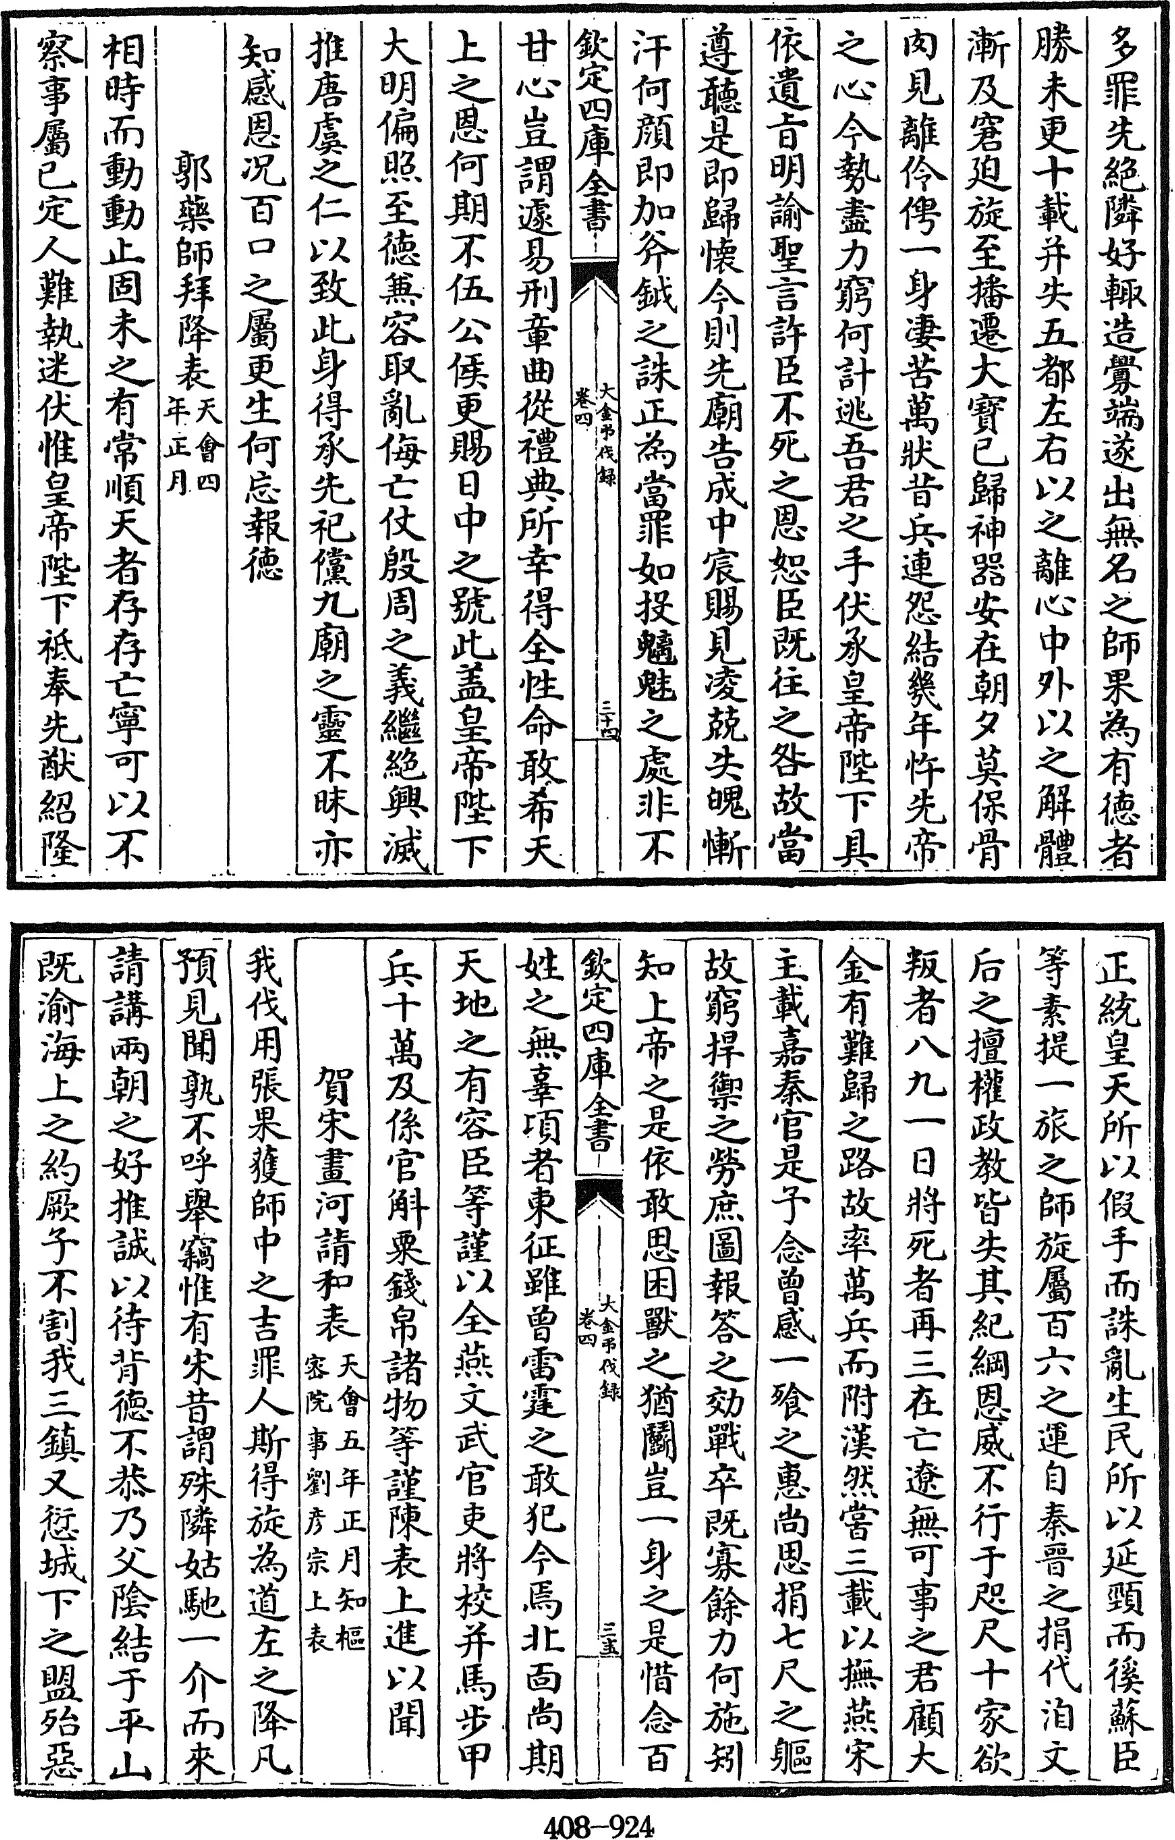 多罪先絶隣好輙造釁端遂出無名之師果為有德者
勝未更十載并失五都左右以之離心中外以之解體
漸及窘廹旋至播遷大寶已歸神器安在朝夕莫保骨
肉見離伶俜一身淒苦萬狀昔兵連怨結幾年忤先帝
之心今勢盡力窮何計逃吾君之手伏承皇帝陛下具
依遺㫖明諭聖言許臣不死之恩恕臣既往之咎故當
遵聽是即歸懷今則先廟告成中宸賜見凌兢失魄慚
汗何顔即加斧鉞之誅正為當罪如投魑魅之處非不
欽定四庫全書
大金弔伐録
卷四
三十四
甘心豈謂遽易刑章曲從禮典所幸得全性命敢希天
上之恩何期不伍公侯更賜日中之號此盖皇帝陛下
大明偏照至德兼容取亂侮亡仗殷周之義繼絶興滅
推唐虞之仁以致此身得承先祀儻九廟之靈不昧亦
知感恩况百口之屬更生何忘報德
郭藥師拜降表天會四年正月
相時而動動止固未之有常順天者存存亡寧可以不
察事屬已定人難執迷伏惟皇帝陛下祗奉先猷紹隆
正統皇天所以假手而誅亂生民所以延頸而徯蘇臣
等素提一旅之師旋屬百六之運自秦晉之捐代洎文
后之擅權政教皆失其紀綱恩威不行于咫尺十家欲
叛者八九一日將死者再三在亡遼無可事之君顧大
金有難歸之路故率萬兵而附漢然嘗三載以撫燕宋
主載嘉秦官是予念曾感一飱之惠尚思捐七尺之軀
故窮捍禦之勞庶圖報答之効戰卒既寡餘力何施矧
知上帝之是依敢思困獸之猶鬭豈一身之是惜念百
欽定四庫全書
大金弔伐録
卷四
三十五
姓之無辜項者東征雖曾雷霆之敢犯今焉北面尚期
天地之有容臣等謹以全燕文武官吏將校并馬步甲
兵十萬及係官斛粟錢帛諸物等謹陳表上進以聞
賀宋畫河請和表天會五年正月知樞宻院事劉彦宗上表
我伐用張果獲師中之吉罪人斯得旋為道左之降凡
預見聞孰不呼舉竊惟有宋昔謂殊隣姑馳一介而來
請講兩朝之好推誠以待背德不恭乃父陰結于平山
既渝海上之約厥子不割我三鎮又愆城下之盟殆惡
408-924